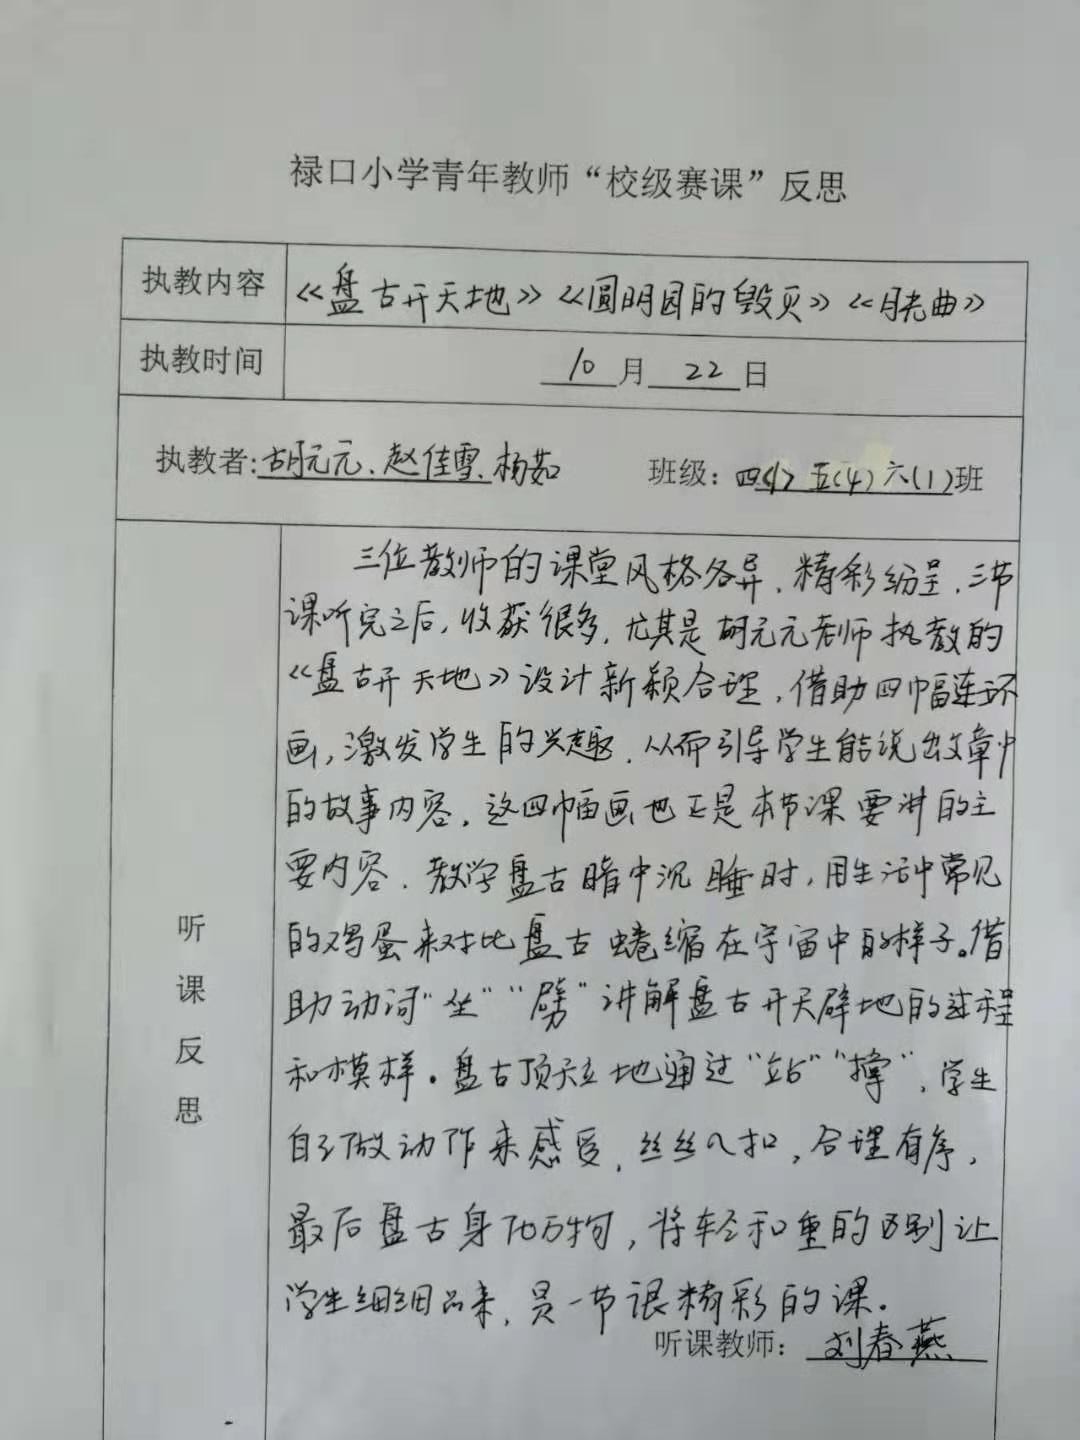 禄口小学青年教师“校级赛课”反思
执教内容 《盘古开天地》《圆明园的毁灭》《月光曲》
执教时间 10月22日
执教者:胡元元、赵佳雪、杨茹 班级:四 五(4)六(1)班
听课反思
三位教师的课堂风格各异,精彩纷呈,三节
课听完之后,收获很多,尤其是胡元元老师执教的
《盘古开天地》设计新颖合理,借助四幅连环
画,激发学生的兴趣,从而引导学生能说出文章中
的故事内容,这四幅画也正是本节课要讲的主
要内容.教学盘古暗中沉睡时,用生活中常见
的鸡蛋来对比盘古蜷缩在宇宙中的样子。借
助动词“坐”“劈”讲解盘古开天辟地的过程
和模样。盘古顶天立地通过“站”“撑”,学生
自己做动作来感受,丝丝入扣,合理有序,
最后盘古身化万物,将轻和重的区别让
学生细细品来,是一节很精彩的课。
听课教师:刘春燕